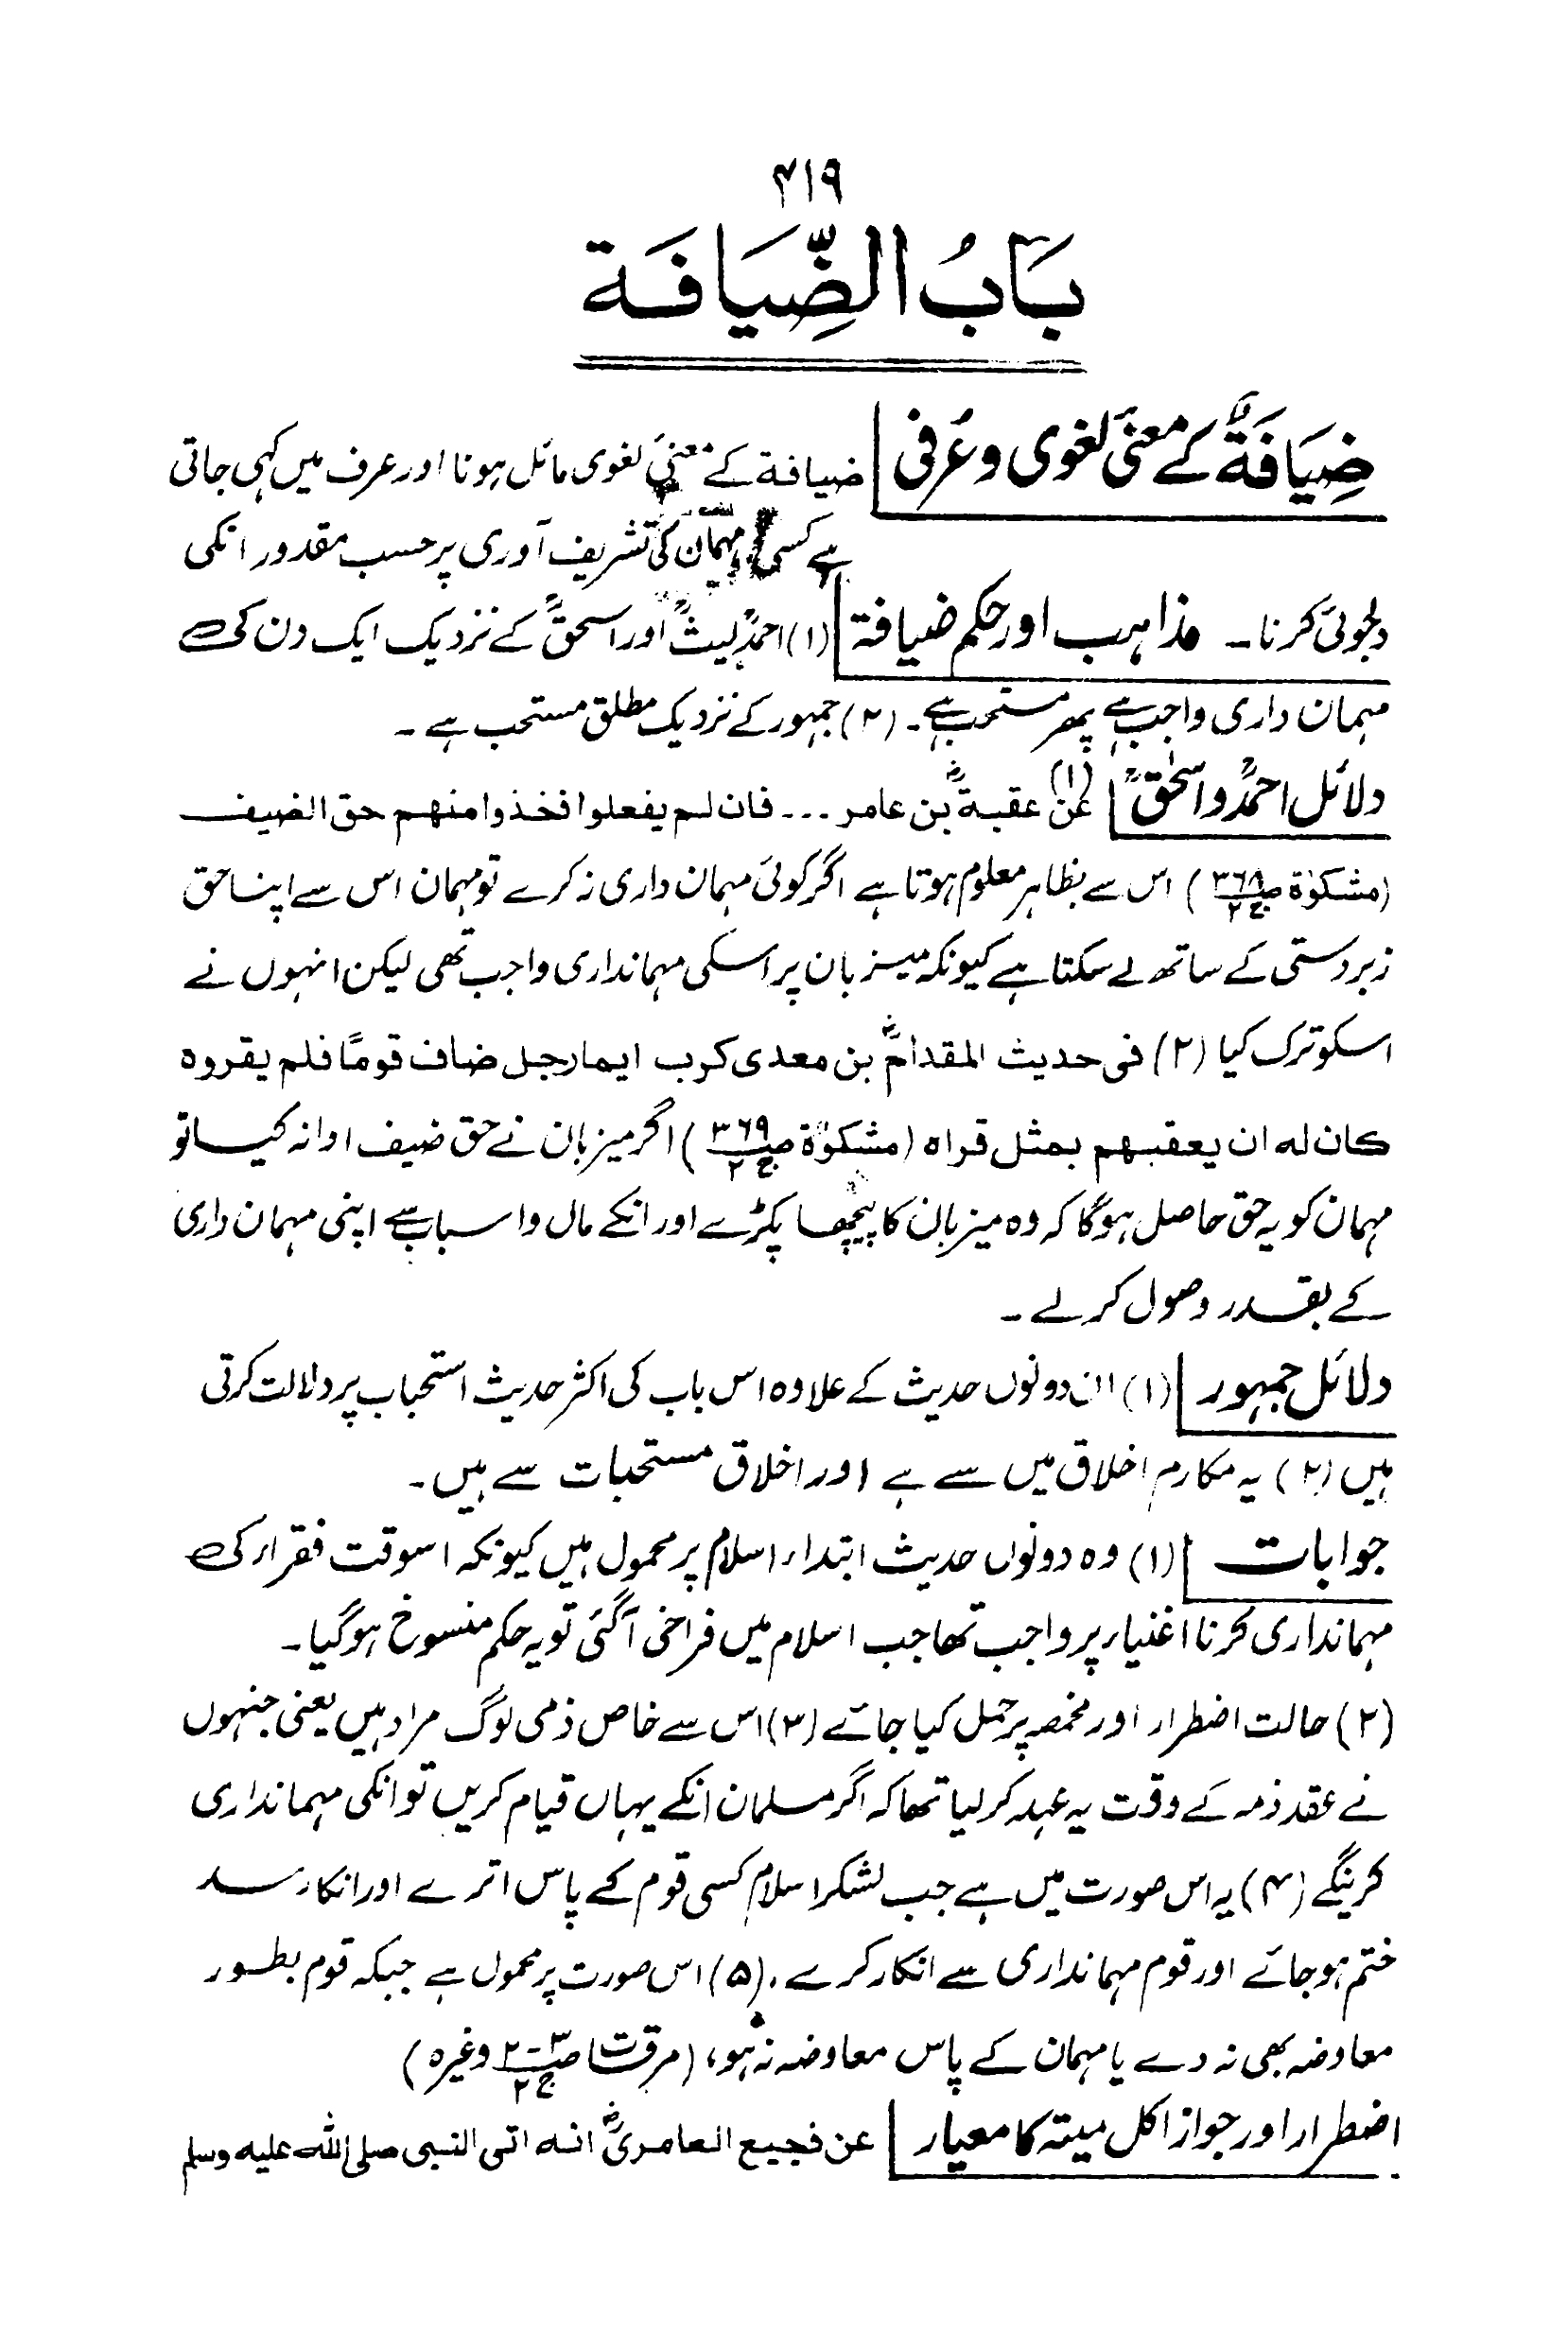 ۴۱۹
بَابُ الضِّیَافَة
ضِیَافَةٌ کے معنیٔ لغوی وعُرفی ضیافة کے معنیٔ لغوی مائل ہونا اور عرف میں کہی جاتی
ہے کسی مہمان کی تشریف آوری پر حسب مقدور انکی
دلجوئی کرنا۔ مذاہب اور حکم ضیافة (۱) احمدؒ لیثؒ اور اسحقؒ کے نزدیک ایک دن کی
مہمان داری واجب ہے پھر مستحب ہے۔ (۲) جمہور کے نزدیک مطلق مستحب ہے۔
دلائل احمدؒ واسحٰقؒ (۱) عن عقبةؓ بن عامر ... فان لم یفعلوا فخذوا منھم حق الضیف
(مشکوٰة ص۳۶۸ ج۲) اس سے بظاہر معلوم ہوتا ہے اگر کوئی مہمان داری نہ کرے تو مہمان اس سے اپنا حق
زبردستی کے ساتھ لے سکتا ہے کیونکہ میزبان پر اسکی مہمانداری واجب تھی لیکن انہوں نے
اسکو ترک کیا (۲) فی حدیث المقدامؓ بن معدی کرب ایما رجل ضاف قومًا فلم یقروہ
کان لہ ان یعقبھم بمثل قراہ (مشکوٰة ص۳۶۹ ج۲) اگر میزبان نے حق ضیف ادا نہ کیا تو
مہمان کو یہ حق حاصل ہوگا کہ وہ میزبان کا پیچھا پکڑے اور انکے مال واسباب سے اپنی مہمان داری
کے بقدر وصول کرلے۔
دلائل جمہور (۱) ان دونوں حدیث کے علاوہ اس باب کی اکثر حدیث استحباب پر دلالت کرتی
ہیں (۲) یہ مکارم اخلاق میں سے ہے اور اخلاق مستحبات سے ہیں۔
جوابات (۱) وہ دونوں حدیث ابتداء اسلام پر محمول ہیں کیونکہ اسوقت فقراء کی
مہمانداری کرنا اغنیاء پر واجب تھا جب اسلام میں فراخی آگئی تو یہ حکم منسوخ ہوگیا۔
(۲) حالت اضطرار اور مخمصہ پر حمل کیا جائے (۳) اس سے خاص ذمی لوگ مراد ہیں یعنی جنہوں
نے عقد ذمہ کے وقت یہ عہد کرلیا تھا کہ اگر مسلمان انکے یہاں قیام کریں تو انکی مہمانداری
کرینگے (۴) یہ اس صورت میں ہے جب لشکر اسلام کسی قوم کے پاس اترے اور انکا رسد
ختم ہوجائے اور قوم مہمانداری سے انکار کرے، (۵) اس صورت پر محمول ہے جبکہ قوم بطور
معاوضہ بھی نہ دے یا مہمان کے پاس معاوضہ نہ ہو، (مرقات ج۲ وغیرہ)
اضطرار اور جواز اکل میتہ کا معیار عن فجیع العامریؓ انہ اتی النبی صلی اللہ علیہ وسلم